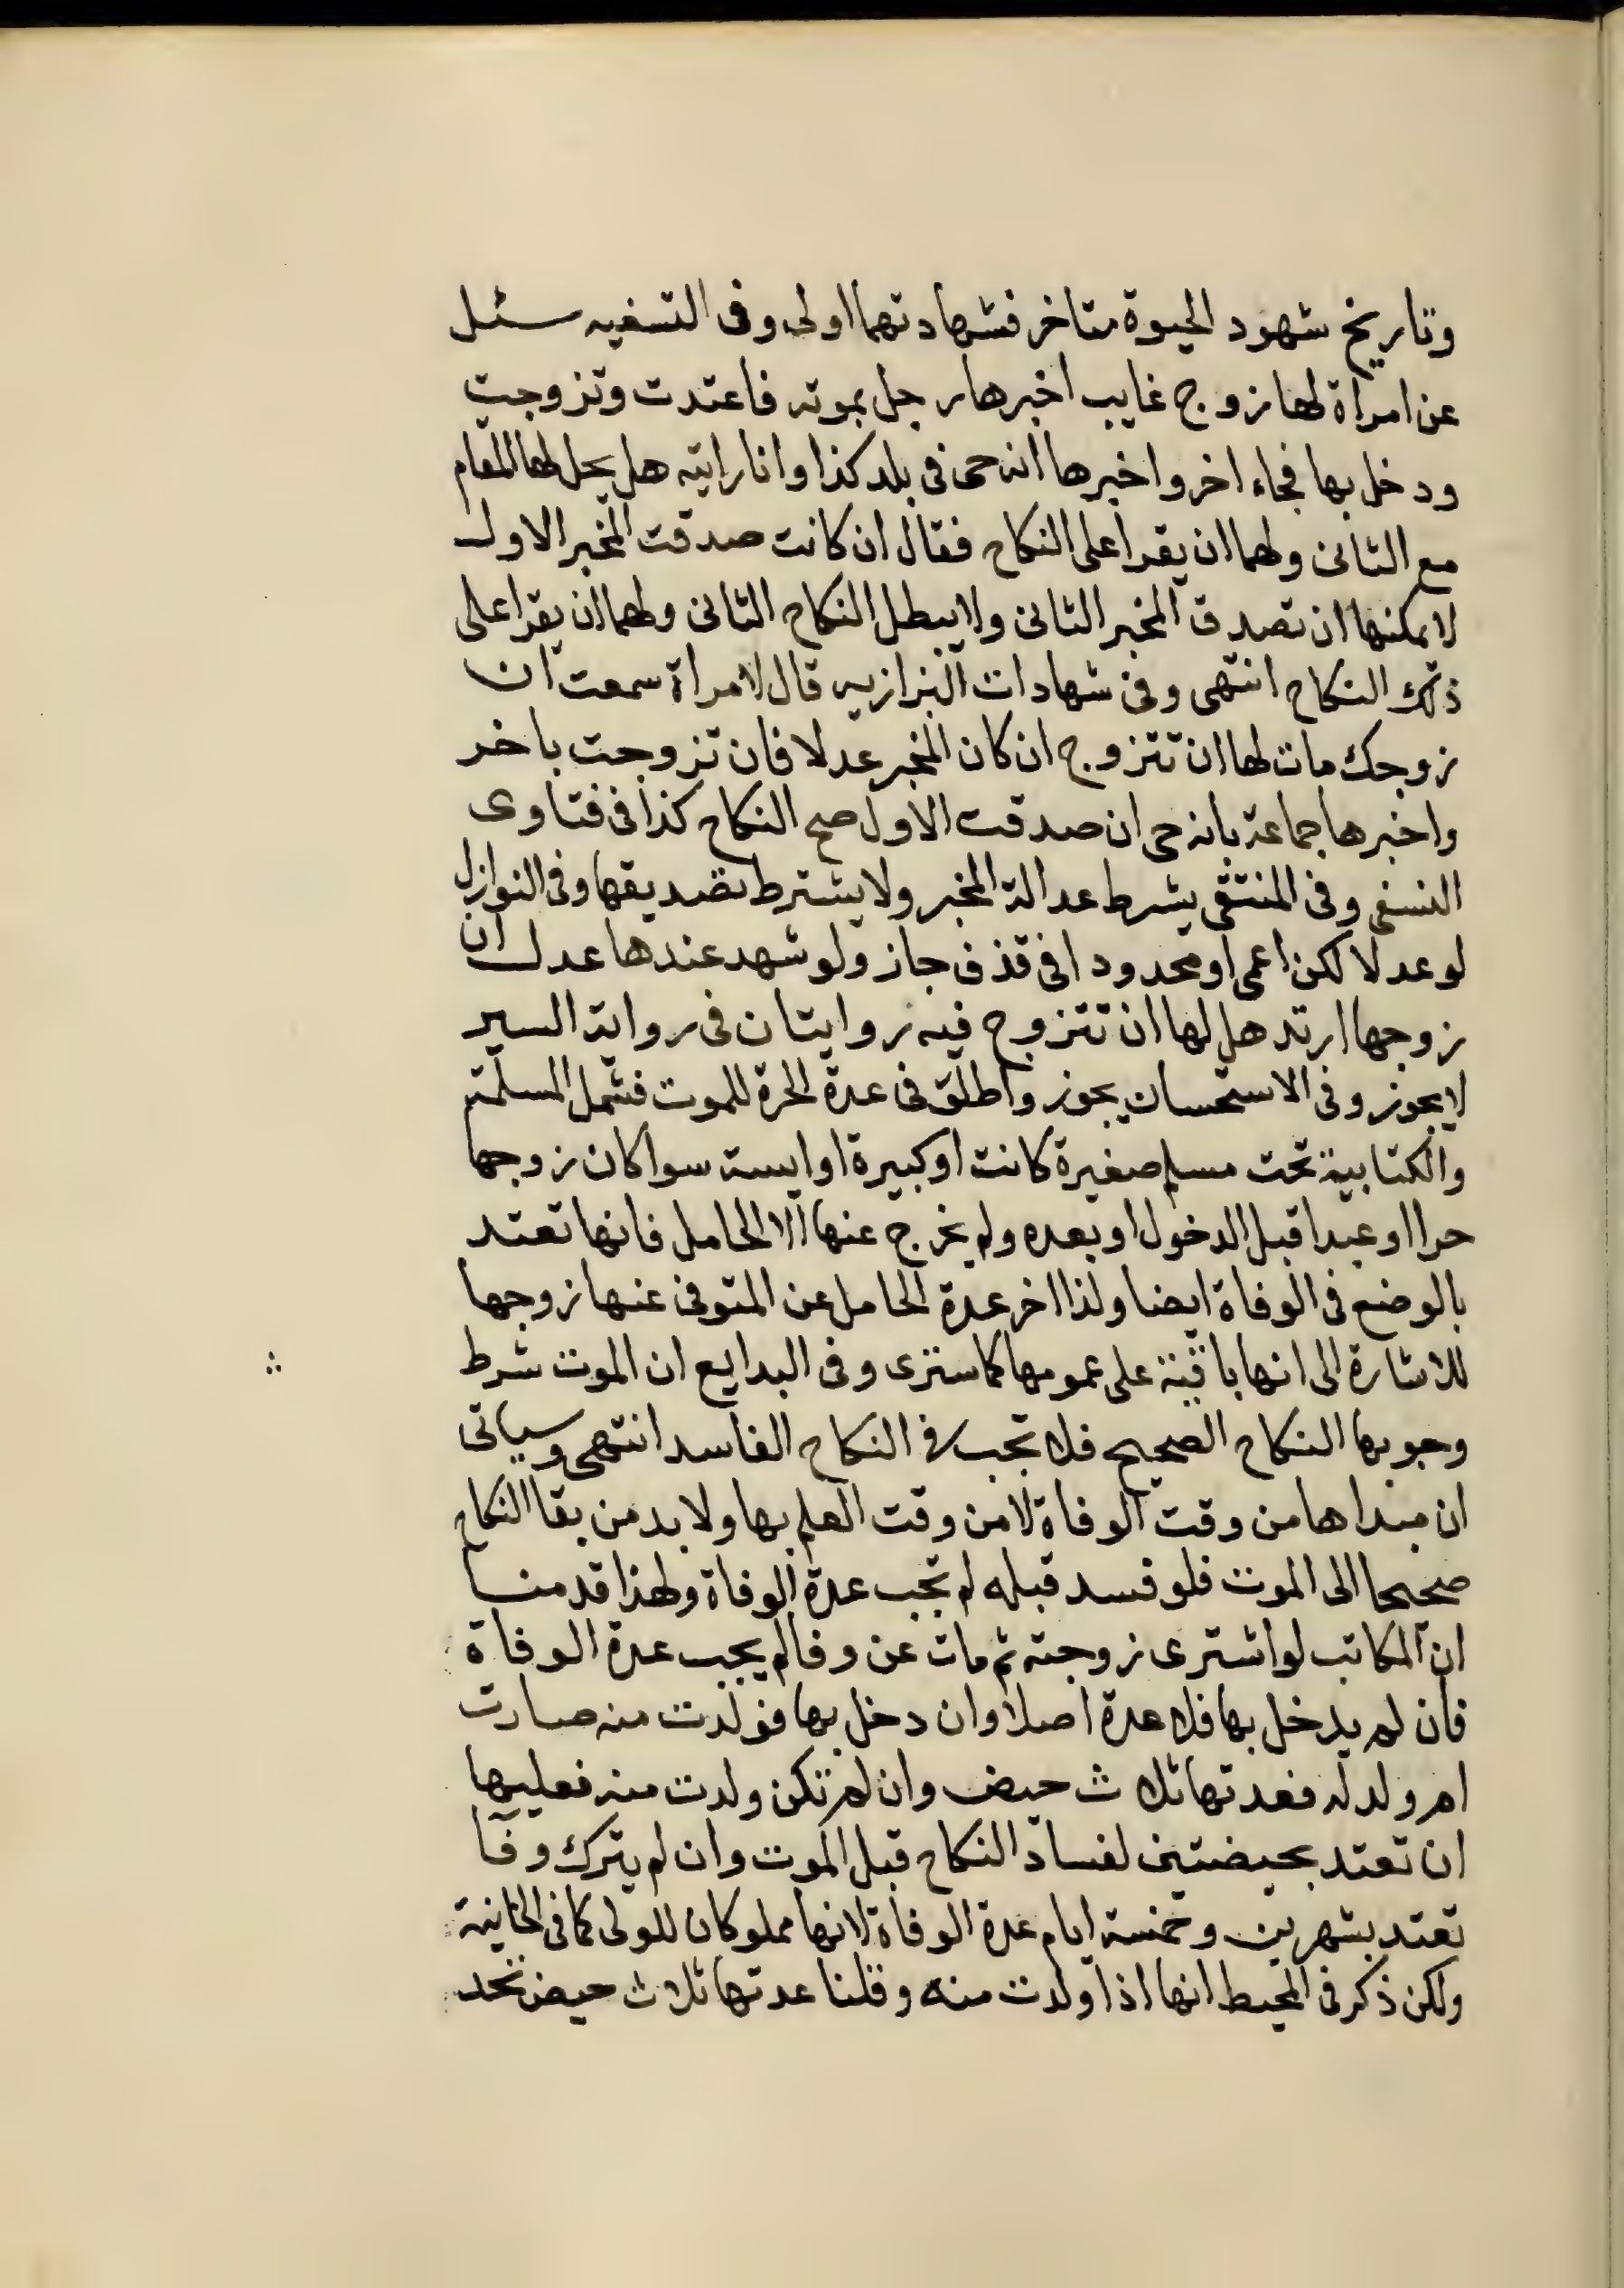 وتاريخ شهود الحيوة متاخر فشهادتهما اولى وفى النسفيه سئل
عن امراة لها زوج غايب اخبرها رجل بموته فاعتدت وتزوجت
ودخل بها فجاء اخر واخبرها انه حى فى بلد كذا وانا رايته هل يحل لها المقام
مع الثانى ولهما ان يقرا على النكاح فقال ان كانت صدقت المخبر الاول
لا يمكنها ان تصدق المخبر الثانى ولا يبطل النكاح الثانى ولهما ان يقرا على
ذلك النكاح انتهى وفى شهادات البزازيه قال لامراة سمعت ان
زوجك مات لها ان تتزوج ان كان المخبر عدلا فان تزوجت باخر
واخبرها جماعة بانه حى ان صدقت الاول صح النكاح كذا فى فتاوى
النسفى وفى المنتقى يشرط عدالة المخبر ولا يشترط تصديقها وفى النوازل
لو عدلا لكن اعمى او محدودا فى قذف جاز ولو شهد عندها عدل ان
زوجها ارتد هل لها ان تتزوج فيه روايتان فى رواية السير
لا يجوز وفى الاستحسان يجوز واطلق فى عدة الحرة للموت فشمل المسلمة
والكتابية تحت مسلم صغيرة كانت او كبيرة او ايسة سوا كان زوجها
حرا او عبدا قبل الدخول او بعده ولم يخرج عنها الا الحامل فانها تعتد
بالوضع فى الوفاة ايضا ولذا اخر عدة الحامل عن المتوفى عنها زوجها
للاشارة الى انها باقية على عمومها كما سترى وفى البدايع ان الموت شرط
وجوبها النكاح الصحيح فلا تجب فى النكاح الفاسد انتهى وسياتى
ان مبداها من وقت الوفاة لا من وقت العلم بها ولا بد من بقا النكاح
صحيحا الى الموت فلو فسد قبله لم تجب عدة الوفاة ولهذا قدمنا
ان المكاتب لو اشترى زوجته ثم مات عن وفا لم يجب عدة الوفاة
فان لم يدخل بها فلا عدة اصلا وان دخل بها فولدت منه صارت
ام ولد له فعدتها ثلاث حيض وان لم تكن ولدت منه فعليها
ان تعتد بحيضتين لفساد النكاح قبل الموت وان لم يترك وفآ
تعتد بشهرين وخمسة ايام عدة الوفاة لانها مملوكان للولى كما فى الخانية
ولكن ذكر فى المحيط انها اذا ولدت منه وقلنا عدتها ثلاث حيض تحد